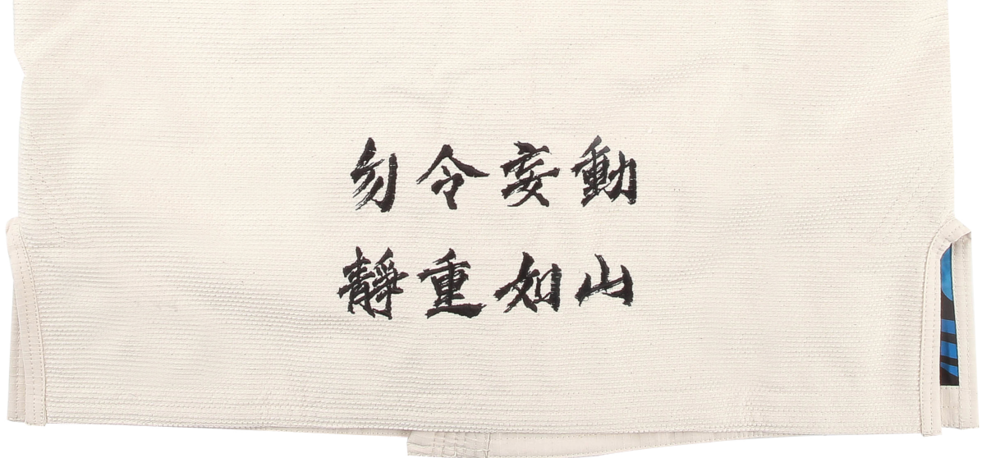 勿令妄動
靜重如山